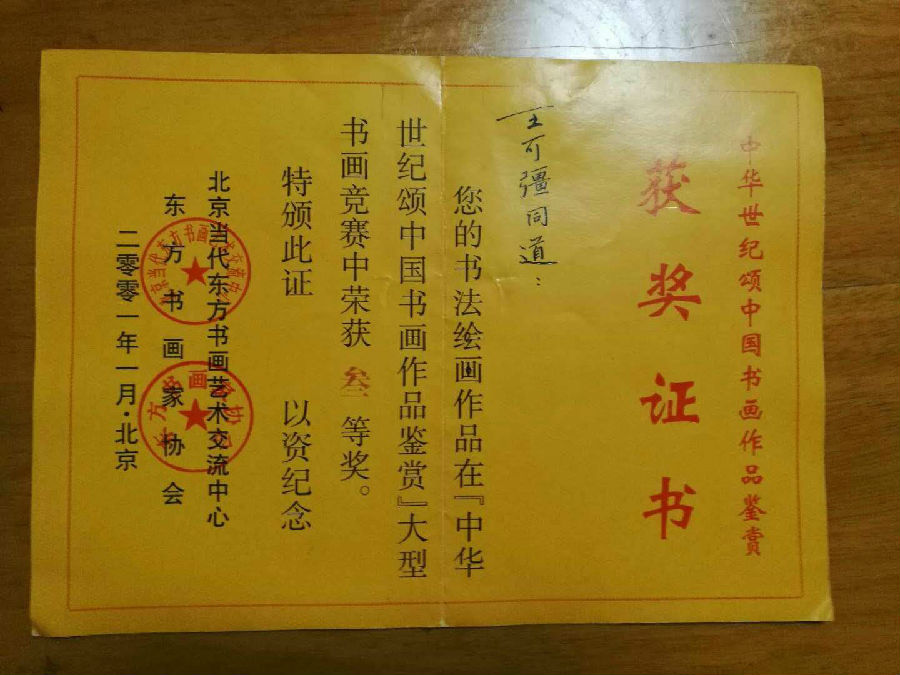 中华世纪颂中国书画作品鉴赏
获奖证书
王可疆同道：
您的书法绘画作品在『中华
世纪颂中国书画作品鉴赏』大型
书画竞赛中荣获 叁 等奖。
特颁此证 以资纪念
北京当代东方书画艺术交流中心
东方书画家协会
二零零一年一月·北京